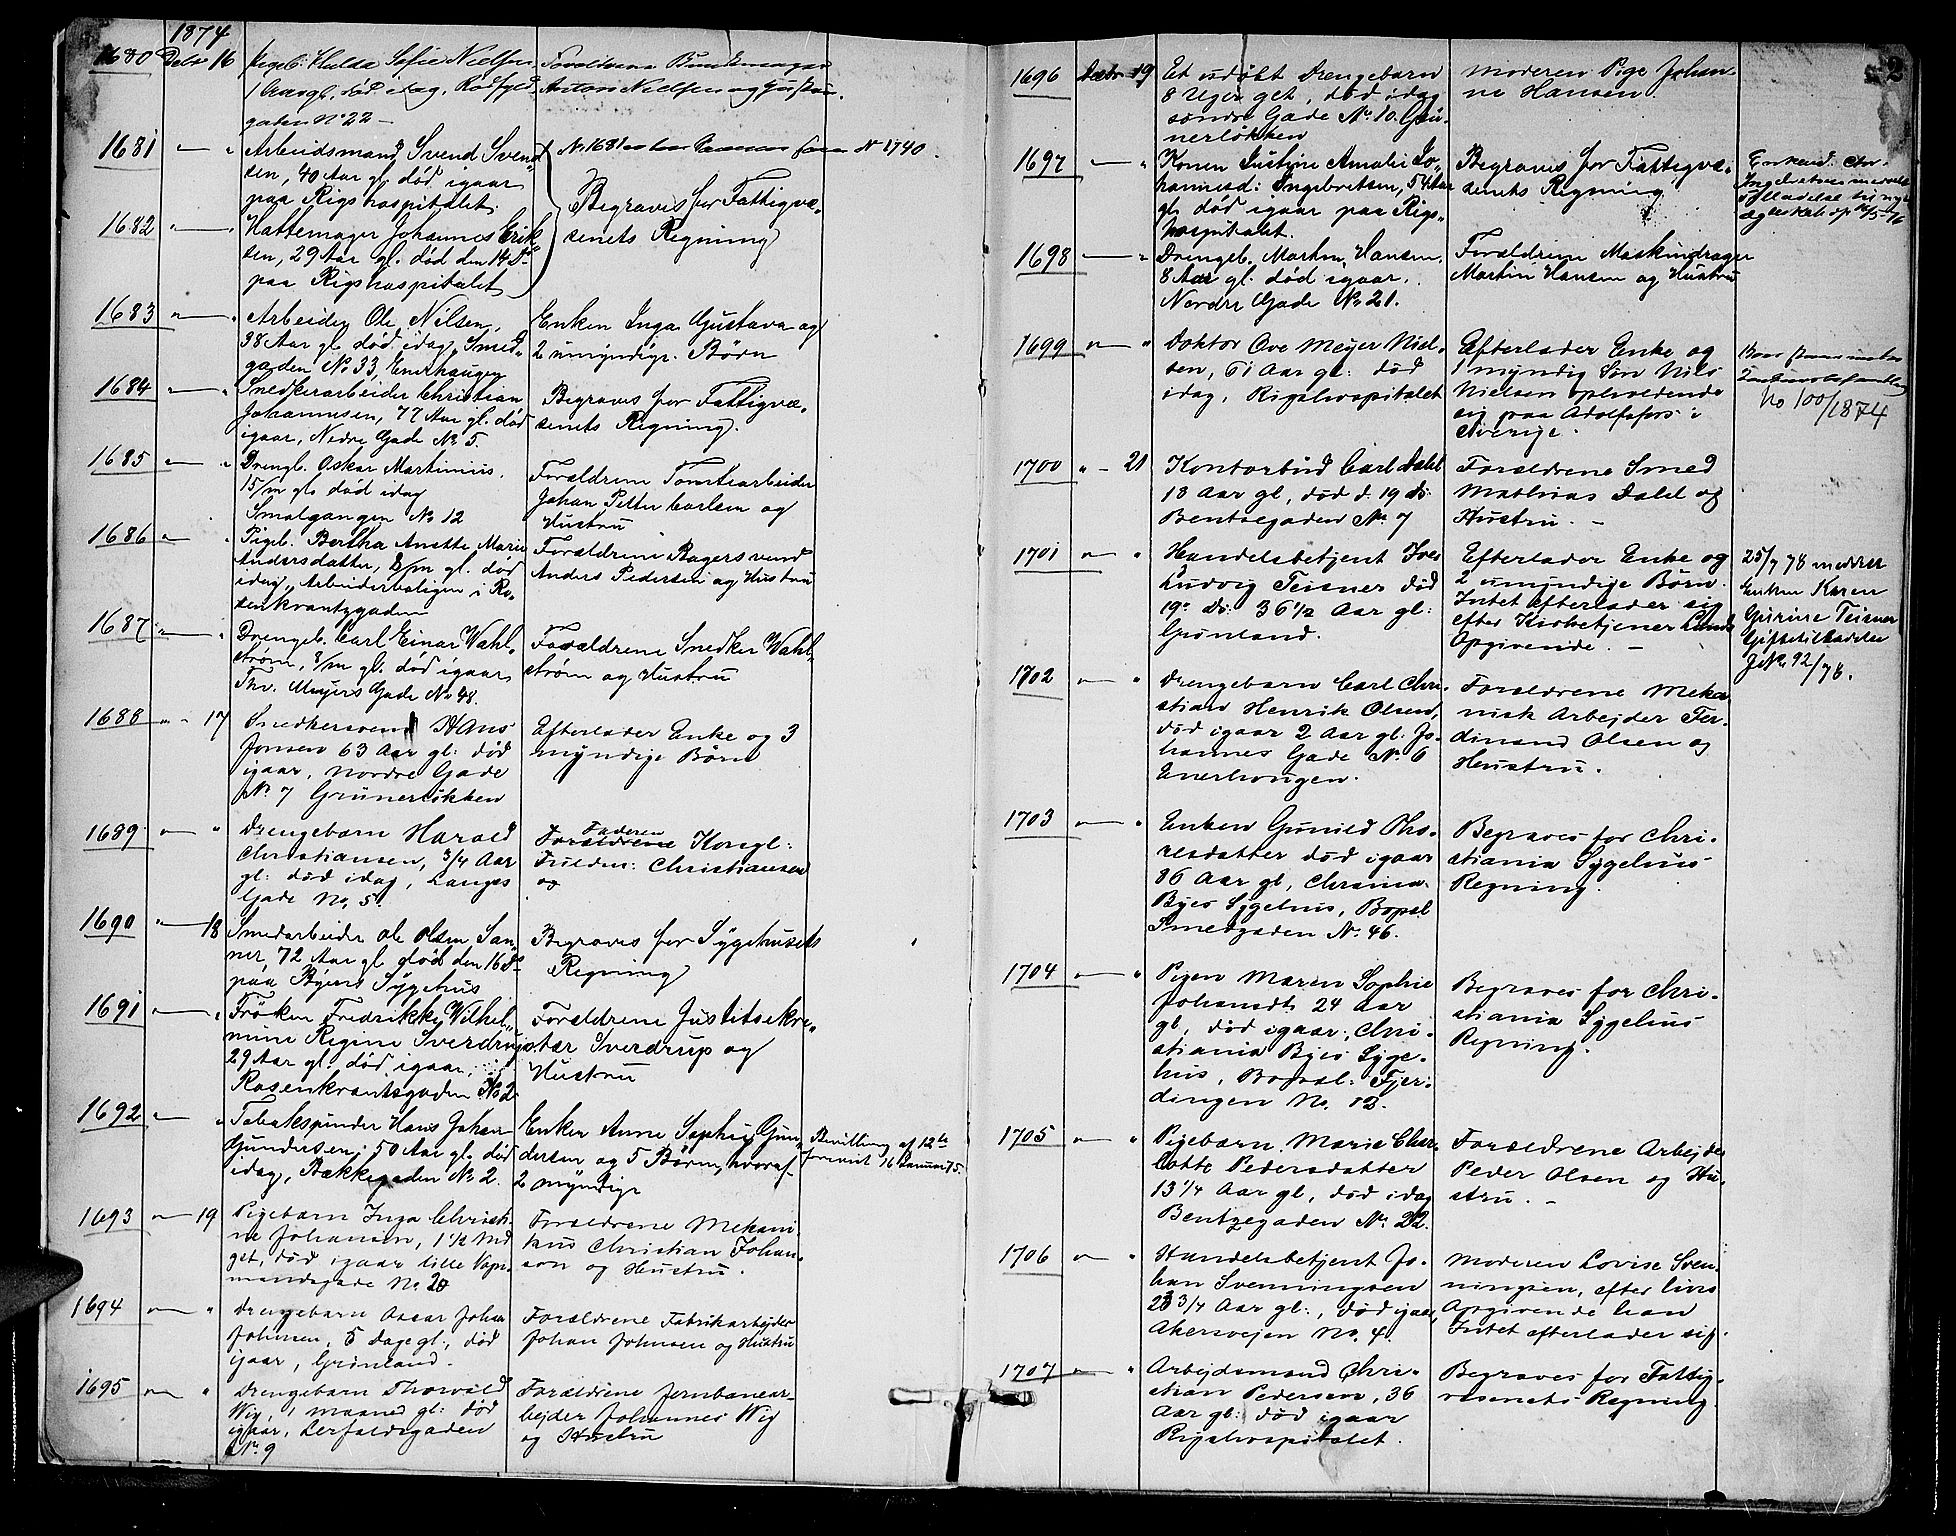 1874
1680 Debr 16 Pigeb: Hulda Sofie Nielsen
1 Aar gl. død idag, Rødfyld
gaden No 22 —
Forældrene Bundtmager
Anton Nielsen og Hustru.
1681 — " Arbeidsmand Svend Svend
sen, 40 Aar gl. død igaar
paa Rigshospitalet.
No 1681 No 1740.
Begraves for Fattigvæ-
senets Regning
1682 — " Hattemager Johannes Erik
sen, 29 Aar gl. død den 14 Ds
paa Rigshospitalet
1683 " — " Arbeider Ole Nilsen,
38 Aar gl. død idag, Smed-
gaden No 33, Enerhaugen
Enken Inga Gustava og
2 umyndige Børn
1684 — " Snedkerarbeider Christian
Johannesen, 77 Aar gl. død
igaar, Nedre Gade No 5.
Begraves for Fattigvæ-
senets Regning.
1685 " — " Drengb. Oskar Martinius
15/m gl. død idag
Smalgangen No 12
Forældrene Tomtearbeider
Johan Petter Carlsen og
Hustru
1686 " — " Pigeb. Bertha Anette Marie
Andersdatter, 8/m gl. død
idag, Arbeiderboligen i Ro-
senkrantzgaden
Forældrene Bagersvend
Anders Pedersen og Hustru
1687 " — " Drengeb. Carl Einar Wahl-
strøm, 9/m gl. død igaar
Thv. Meyers Gade No 48.
Forældrene Snedker Wahl-
strøm og Hustru
1688 " - 17 Snedkersvend Hans
Jonsen 63 Aar gl: død
igaar, Nordre Gade
No 7 Grünerløkken
Efterlader Enke og 3
myndige Børn
1689 " — " Drengebarn Harald
Christiansen, 3/4 Aar
gl: død idag, Langes
Gade No. 5.
Faderen
Forældrene Kongl:
Fuldm: Christiansen
og
1690 " — 18 Smedarbeider Ole Olsen San-
ner, 72 Aar gl. død den 16 Ds
paa Byens Sygehus
Begraves for Sygehusets
Regning
1691 " — " Frøken Fredrikke Wilhel-
mine Regine Sverdrup
29 Aar gl. død igaar,
Rosenkrantzgaden No 2
Forældrene Justitsekre-
tær Sverdrup og
Hustru
1692 " — " Tobakspinder Hans Johan
Gundersen, 50 Aar gl. død
idag, Bækkegaden No 2.
Enken Anne Sophie Gun-
dersen og 5 Børn, hvoraf
2 myndige
Bevilling af 12te
forevist 16 Januar 75.
1693 " — 19 Pigebarn Inga Christi-
ne Johansen, 1 1/2 Md
gl, død igaar Lille Vogn-
mandsgade No. 20
Forældrene Mekani-
kus Christian Johan-
sen og Hustru.
1694 " — " Drengebarn Oscar Johan
Johnsen, 5 Dage gl:, død
igaar, Grønland.
Forældrene Fabrikarbejder
Johan Johnsen og Hustru
1695 " — " Drengebarn Thorvald
Wig, 1 Maaned gl: død
igaar, Lerfaldsgaden
No. 9
Forældrene Jernbanear-
bejder Johannes Wig
og Hustru
2
1696 Decbr 19 Et udøbt Drengebarn
8 Uger gl, død idag
Søndre Gade No. 10. Grü-
nerløkken
Moderen Pige Johan-
ne Hansen.
1697 " — " Konen Justine Amalie Jo-
hannesd: Ingebretsen, 54 Aar
gl. død igaar paa Rigs-
hospitalet.
Begraves for Fattigvæ-
senets Regning
Enkemd. Chr.
Ingebretsen meddelt
Tilladelse til nyt
Ægteskab op 16/5-76
1698 " — " Drengeb. Marthin Hansen,
8 Aar gl. død igaar.
Nordre Gade No 21.
Forældrene Maskindrager
Martin Hansen og Hustru
1699 " — " Doktor Ove Meyer Niel-
sen, 61 Aar gl: død
idag, Rigshospitalet
Efterlader Enke og
1 myndig Søn Nils
Nielsen opholdende
sig paa Adolfsfors i
Sverige.
No 100/1874
1700 " - 21 Kontorbud Carl Dahl
18 Aar gl, død d. 19 ds:
Bentsegaden No. 7
Forældrene Smed
Mathias Dahl og
Hustru. —
1701 " — " Handelsbetjent Iver
Ludvig Teisner død
19de Ds: 36 1/2 Aar gl:
Grønland.
Efterlader Enke og
2 umyndige Børn.
Intet efterlader sig
efter Kirketjener Lunds
Opgivende. —
25/7 78 meddelt
Enken Karen
Gurine Teisner
Giftetilladelse
J. No. 92/78.
1702 " — " Drengebarn Carl Chri-
stian Henrik Olsen,
død igaar 2 Aar gl. Jo-
hannes Gade No. 6
Enerhougen.
Forældrene Meka-
nisk Arbejder Fer-
dinand Olsen og
Hustru.
1703 " — " Enken Gunild Tho-
resdatter død igaar
86 Aar gl, Chrania
Byes Sygehus, Bopæl
Smedgaden No. 46.
Begraves for Chri-
stiania Sygehus
Regning.
1704 " — " Pigen Maren Sophie
Johansdt. 24 Aar
gl, død igaar, Chri-
stiania Byes Syge-
hus, Bopæl: Fjer-
dingen No. 12.
Begraves for Chri-
stiania Sygehus
Regning.
1705 " — " Pigebarn Marie Char-
lotte Pedersdatter
13 1/4 Aar gl, død idag
Bentzegaden No. 22.
Forældrene Arbejder
Peder Olsen og Hu-
stru. —
1706 " — " Handelsbetjent Jo-
han Svenningsen
23 3/4 Aar gl:, død igaar,
Akersvejen No. 4.
Moderen Lovise Sven-
ningsen, efter hvis
Opgivende han
Intet efterlader sig.
1707 " — " Arbejdsmand Chri-
stian Pedersen, 36
Aar gl: død igaar
Rigshospitalet.
Begraves for Fattig-
væsenets Regning